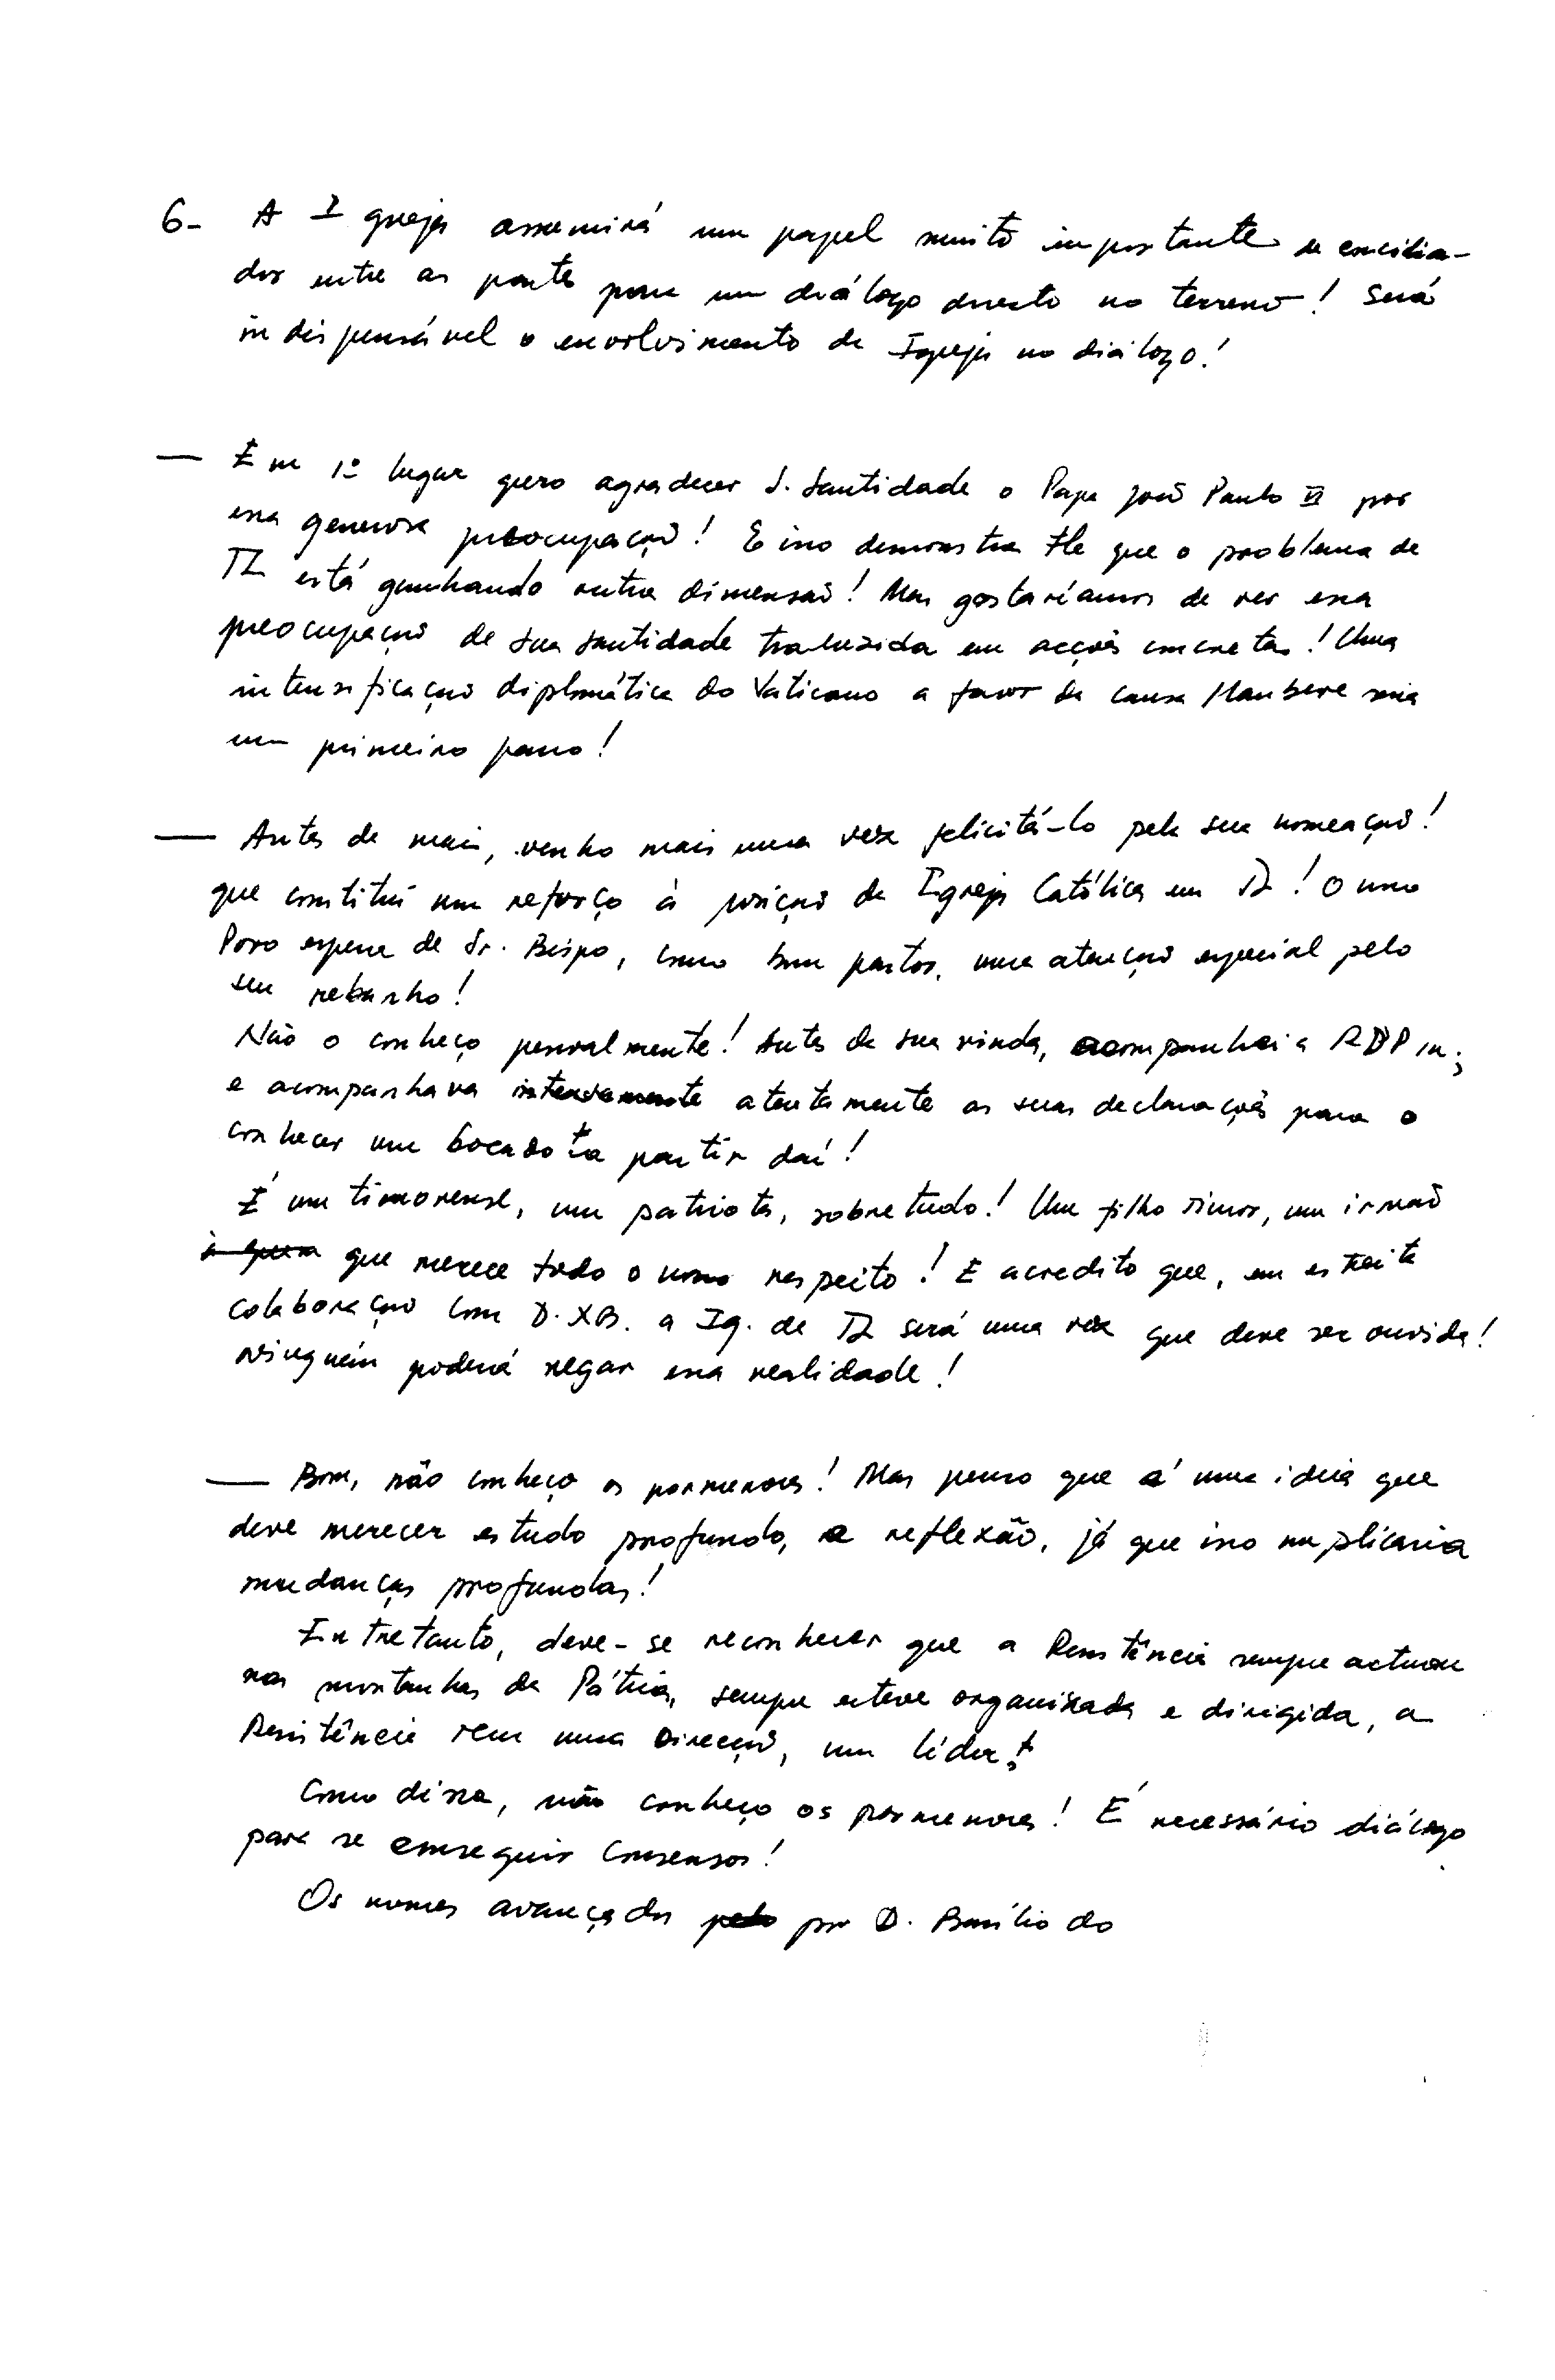 6- A Igreja assumirá um papel muito importante de concilia-
dor entre as partes para um diálogo directo no terreno! Será
indispensável o envolvimento da Igreja no diálogo!
— Em 1º lugar quero agradecer S. Santidade o Papa João Paulo II por
essa generosa preocupação! E isso demonstra que o problema de
TL está ganhando outra dimensão! Mas gostaríamos de ver essa
preocupação de Sua Santidade traduzida em acções concretas! Uma
intensificação diplomática do Vaticano a favor da causa Maubere seria
um primeiro passo!
— Antes de mais, venho mais uma vez felicitá-lo pela sua nomeação!
que constitui um reforço à posição da Igreja Católica em TL! O nosso
Povo espera de Sr. Bispo, como bom pastor, uma atenção especial pelo
seu rebanho!
Não o conheço pessoalmente! Antes da sua vinda, acompanhei a RDP in;
e acompanhava atentamente as suas declarações para o
conhecer um bocado a partir daí!
É um timorense, um patriota, sobretudo! Um filho Timor, um irmão
à quem que merece todo o nosso respeito! E acredito que, em estreita
colaboração com D. XB. a Ig. de TL será uma voz que deve ser ouvida!
ninguém poderá negar essa realidade!
— Bom, não conheço os pormenores! Mas penso que é uma ideia que
deve merecer estudo profundo, e reflexão, já que isso implicaria
mudanças profundas!
Entretanto, deve-se reconhecer que a Resistência sempre actuou
nas montanhas da Pátria, sempre esteve organizada e dirigida, a
Resistência tem uma Direcção, um líder!
Como disse, não conheço os pormenores! É necessário diálogo
para se conseguir consensos!
Os nomes avançados pelo por D. Basílio do